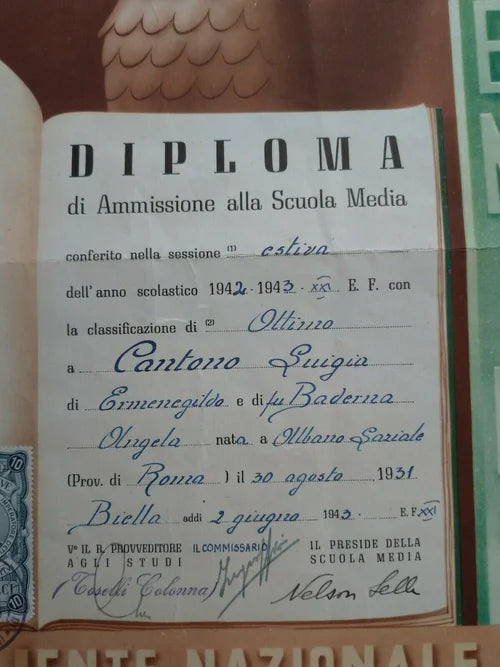 DIPLOMA
di Ammissione alla Scuola Media
conferito nella sessione (1) estiva
dell'anno scolastico 1942-1943-XXI E. F. con
la classificazione di (2) Ottimo
a Cantono Luigia
di Ermenegildo e di fu Baderna
Angela nata a Albano Laziale
(Prov. di Roma) il 30 agosto 1931
Biella addì 2 giugno 1943 E. F. XXI
Vº IL R. PROVVEDITORE IL COMMISSARIO IL PRESIDE DELLA
AGLI STUDI SCUOLA MEDIA
(Toselli Colonna) Nelson Sella
10
10
ENTE NAZIONALE